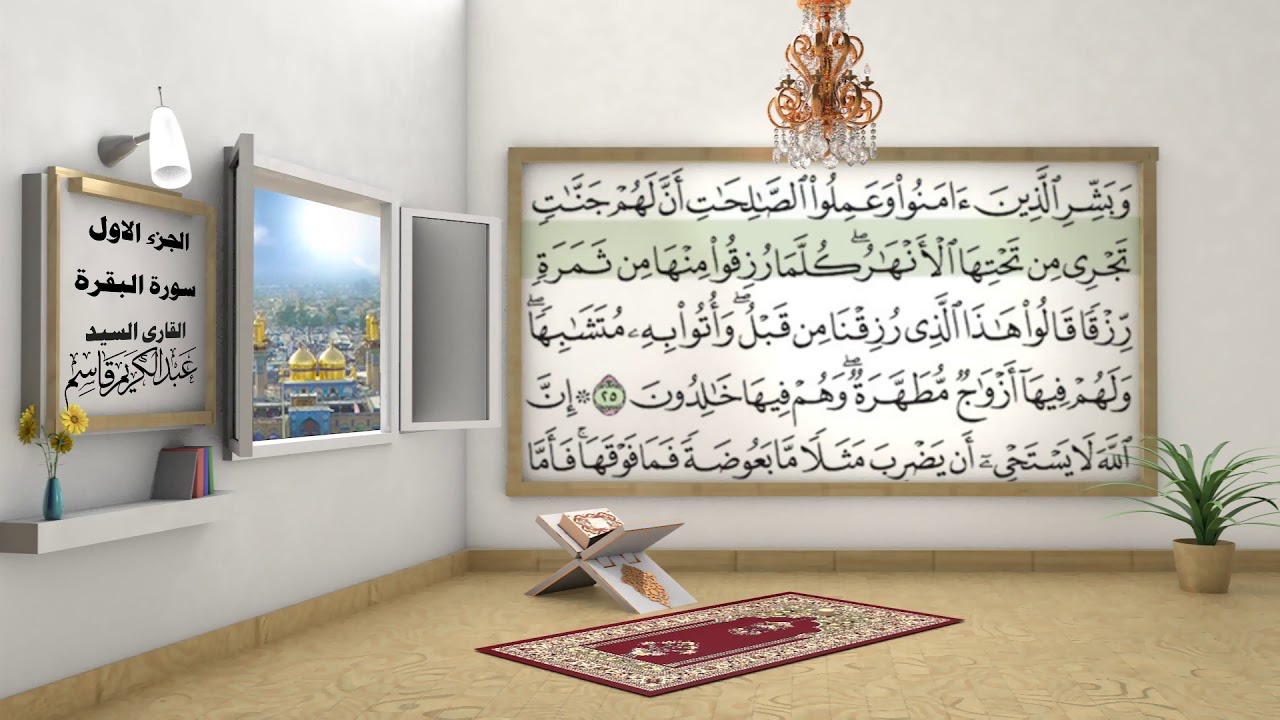 الجزء الاول
سورة البقرة
القارئ السيد
عبدالكريم قاسم
وَبَشِّرِ ٱلَّذِينَ ءَامَنُوا۟ وَعَمِلُوا۟ ٱلصَّـٰلِحَـٰتِ أَنَّ لَهُمۡ جَنَّـٰتٍ
تَجۡرِى مِن تَحۡتِهَا ٱلۡأَنۡهَـٰرُۖ كُلَّمَا رُزِقُوا۟ مِنۡهَا مِن ثَمَرَةٍ
رِّزۡقًا قَالُوا۟ هَـٰذَا ٱلَّذِى رُزِقۡنَا مِن قَبۡلُۖ وَأُتُوا۟ بِهِۦ مُتَشَـٰبِهًاۖ
وَلَهُمۡ فِيهَآ أَزۡوَٰجٌ مُّطَهَّرَةٌۖ وَهُمۡ فِيهَا خَـٰلِدُونَ ٢٥ ۞ إِنَّ
ٱللَّهَ لَا يَسۡتَحۡىِۦٓ أَن يَضۡرِبَ مَثَلًا مَّا بَعُوضَةً فَمَا فَوۡقَهَاۚ فَأَمَّا